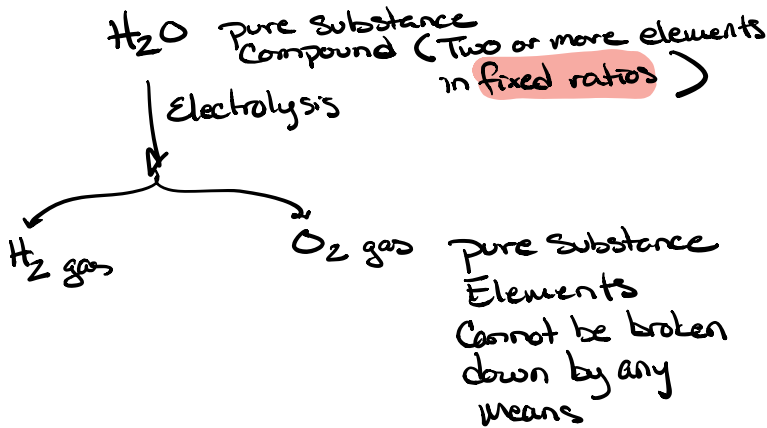 H₂O pure substance
Compound (Two or more elements
in fixed ratios)
Electrolysis
H₂ gas
O₂ gas
pure substance
Elements
Cannot be broken
down by any
means